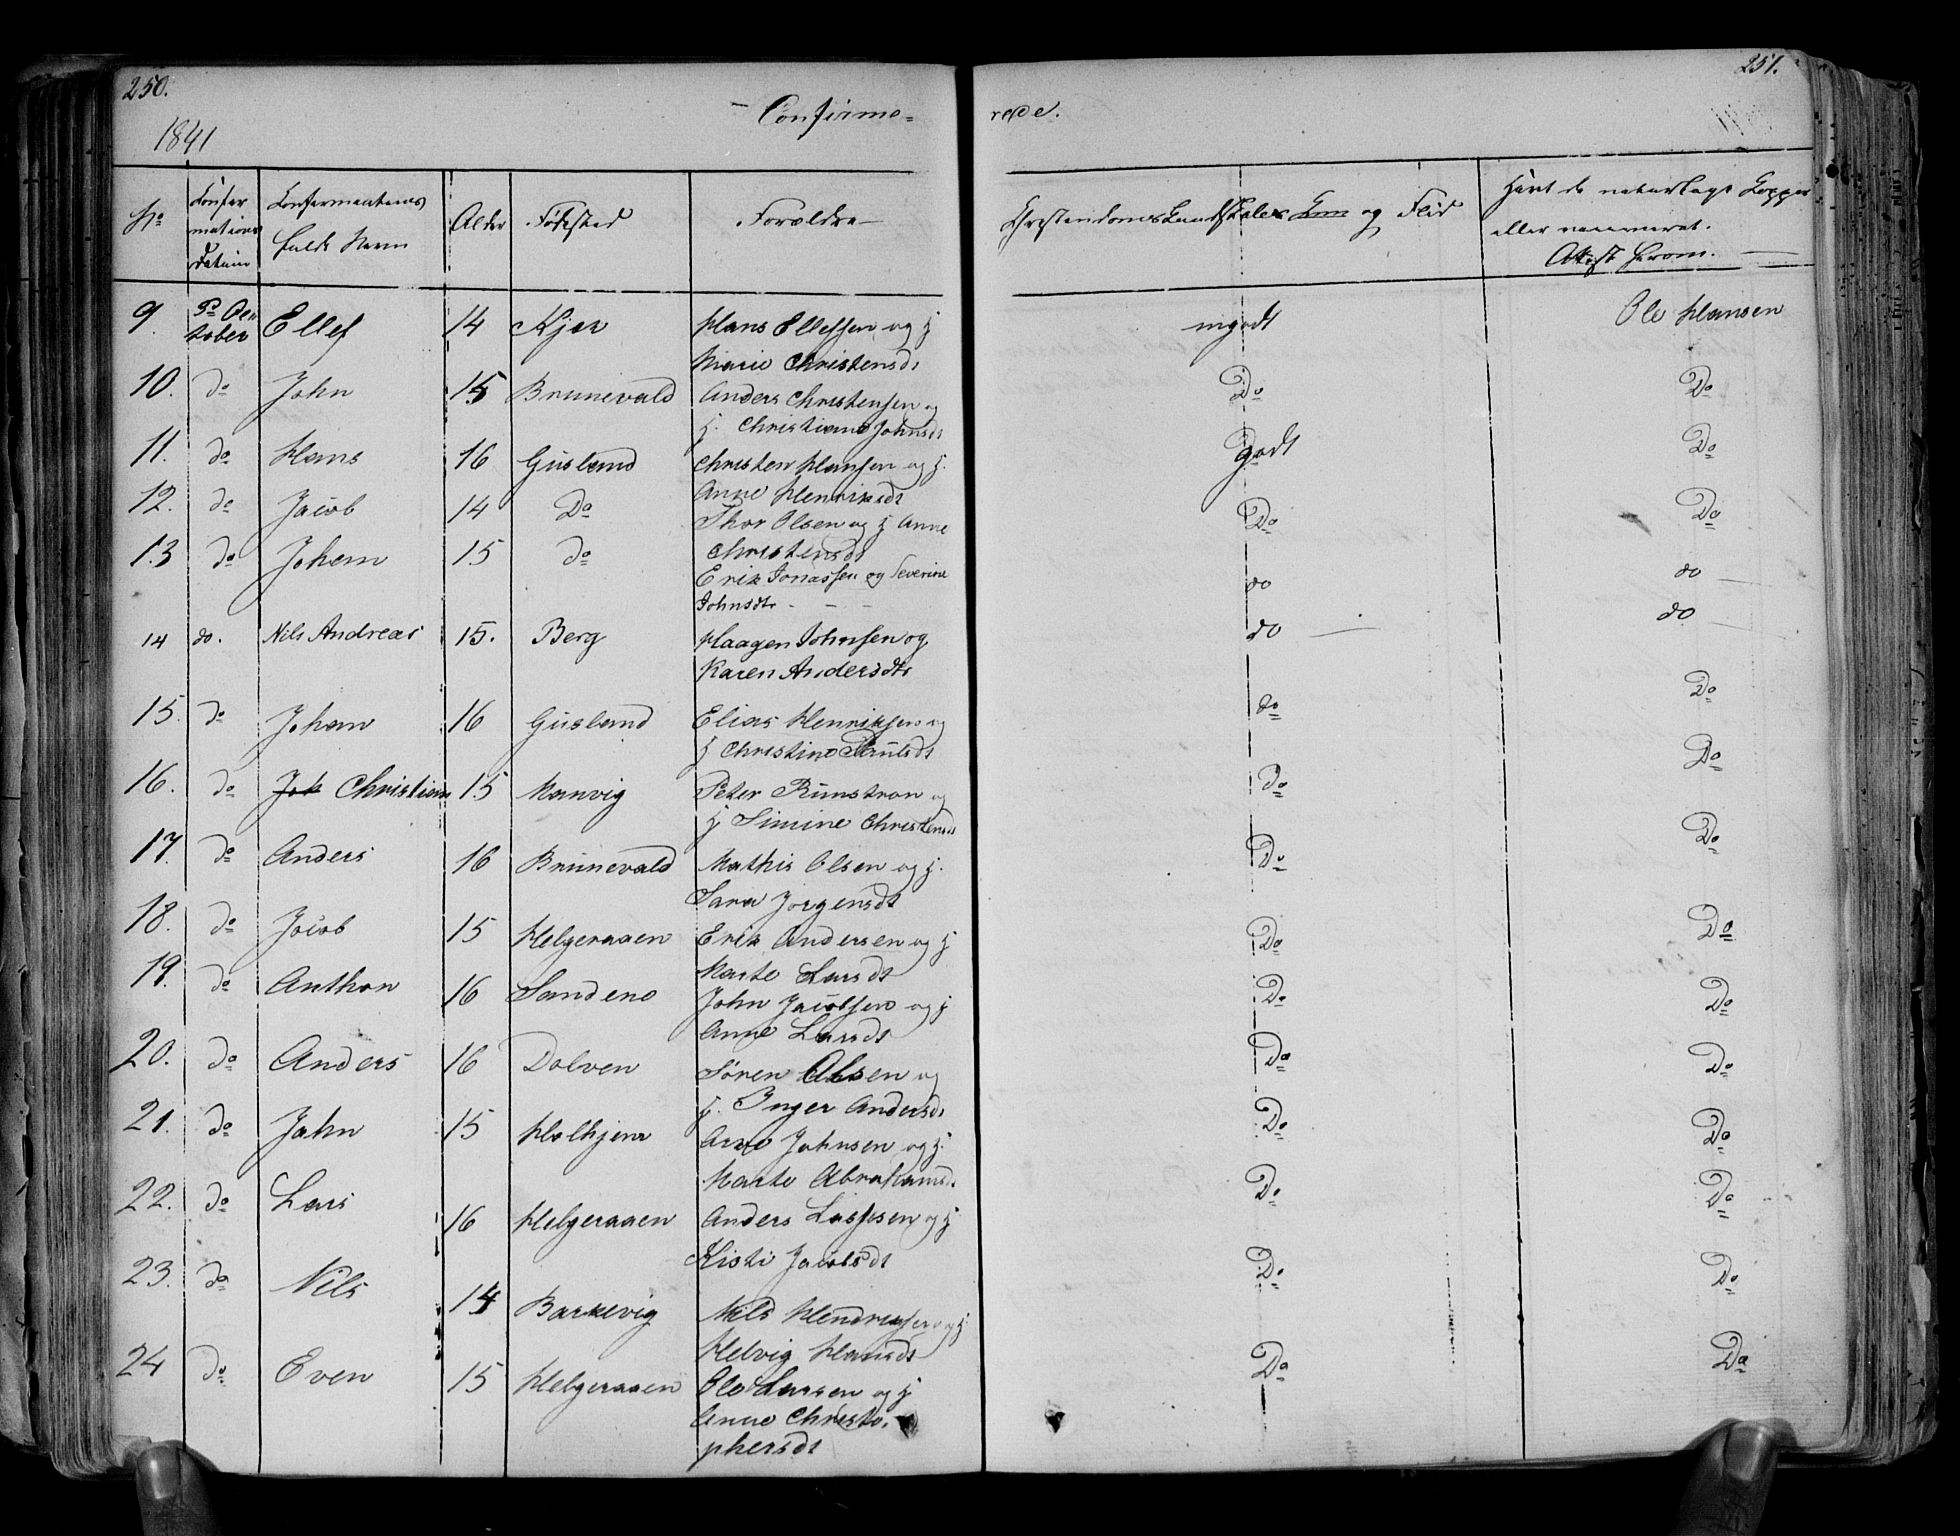 250.
251.
Confirme=
rede.
1841
No
Confir
mations
Datum
Confirmantens
fulde Navn
Alder
Fødested
Forældre
Christendoms Kundskaber og Flid
Havt de naturlige Kopper
eller vaccineret.
Attest herom.
9. Oc
tober Ellef 14 Kjær Hans Ellefsen og h mgodt Ole Hansen
Marie Christensdt
10. do John 15 Brunevald Anders Christensen og Do Do
h. Christiane Johnsdt
11. do Hans 16 Gusland Christen Hansen og h. Godt Do
Anne Henriksdt
12. do Jacob 14 Do Thor Olsen og h Anne Do Do
Christensdt
13 do Johan 15 do Erik Jonassen og Severine do do
Johnsdtr
14 do. Nils Andreas 15. Berg Haagen Johnsen og do do
Karen Andersdtr
15 do Johan 16 Gusland Elias Henriksen og do Do
h Christine
16. do Joh Christian 15 Manvig Peter og do Do
h Simine Christensdt
17. do Anders 16 Brunevald Mathis Olsen og h. Do Do
Sara Jorgensdt
18. do Jacob 15 Helgeraaen Erik Andersen og h Do Do
Marte Larsdt
19. do Anthon 16 Sandene John Jacobsen og h Do Do
Anne Larsdt
20. do Anders 16 Dolven Søren Olsen og Do Do
h. Inger Andersdt
21. do John 15 Holhjem Arne Johnsen og h. Do Do
Marte Abrahamsdt
22. do Lars 16 Helgeraaen Anders Larssen og h Do Do
Kisti Jacobsdt
23. do Nils 14 Barkevig Nils Hendriksen og h Do Do
Helvig Hansdt
24 do Even 15 Helgeraaen Ole Larsen og h Do Do
Anne Christo-
phersdt